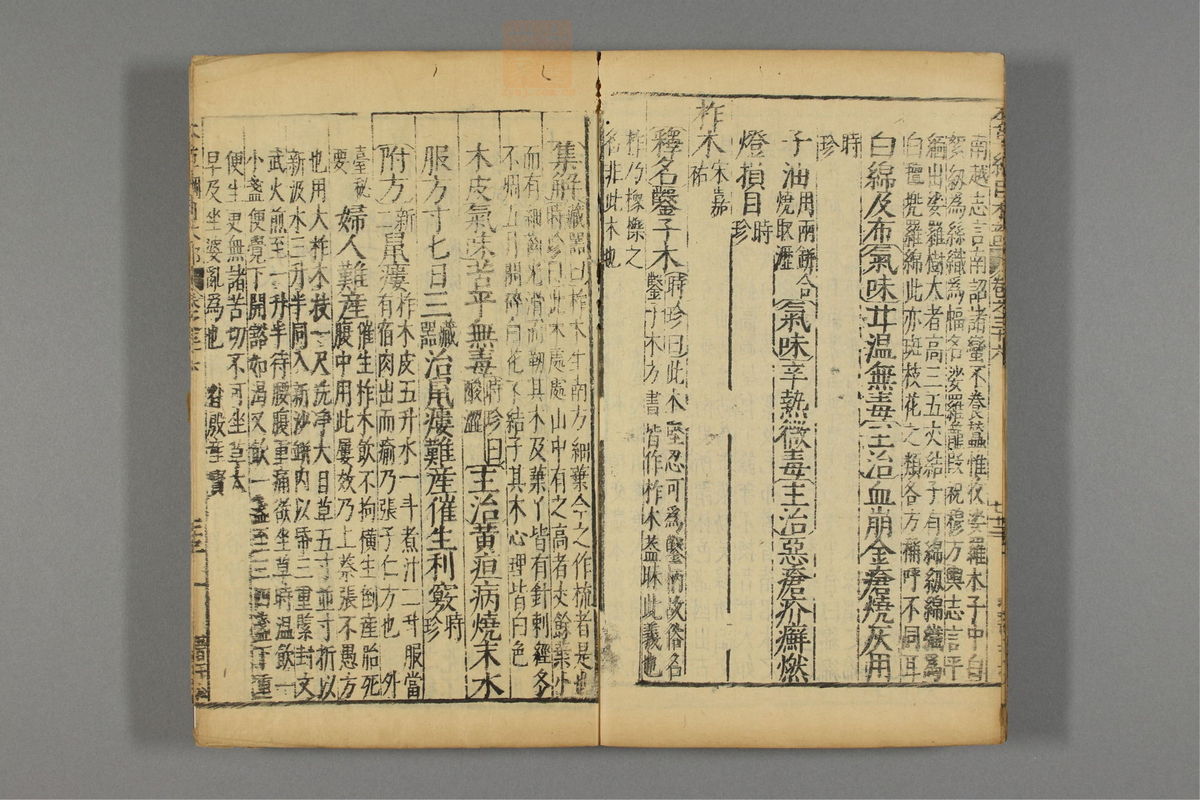 南越志言南詔諸蠻不養蠶惟收娑羅木子中白
絮紉為絲織為幅名娑羅籠段祝穆方輿志言平
緬出娑羅樹大者高三五丈結子有綿紉綿織為
白氊兜羅綿此亦斑枝花之類各方稱呼不同耳
白綿及布氣味甘溫無毒主治血崩金瘡燒灰用
時珍
子油用兩缾合燒取瀝氣味辛熱微毒主治惡瘡疥癬燃
燈損目時珍
柞木宋嘉祐
釋名鑿子木時珍曰此木堅忍可為鑿柄故俗名
鑿子木方書皆作柞木蓋昧此義也
柞乃橡櫟之
名非此木也
集解藏器曰柞木生南方細葉今之作梳者是也
時珍曰此木處處山中有之高者丈餘葉小
而有細齒光滑而韌其木及葉丫皆有針刺經冬
不凋五月開碎白花不結子其木心理皆白色
木皮氣味苦平無毒時珍曰酸澀主治黃疸病燒末水
服方寸匕日三藏器治鼠瘻難產催生利竅時珍
附方新二鼠瘻柞木皮五升水一斗煮汁二升服當
有宿肉出而愈乃張子仁方也外
臺秘要婦人難產催生柞木飲不拘橫生倒產胎死
腹中用此屢效乃上蔡張不愚方
也用大柞木枝一尺洗淨大甘草五寸並寸折以
新汲水三升半同入新沙缾內以紙三重緊封文
武火煎至一升半待腰腹重痛欲坐草時溫飲一
小盞便覺下開豁如渴又飲一盞至三四盞下重
便生更無諸苦切不可坐草太
早及坐婆亂為也 昝殷產寶